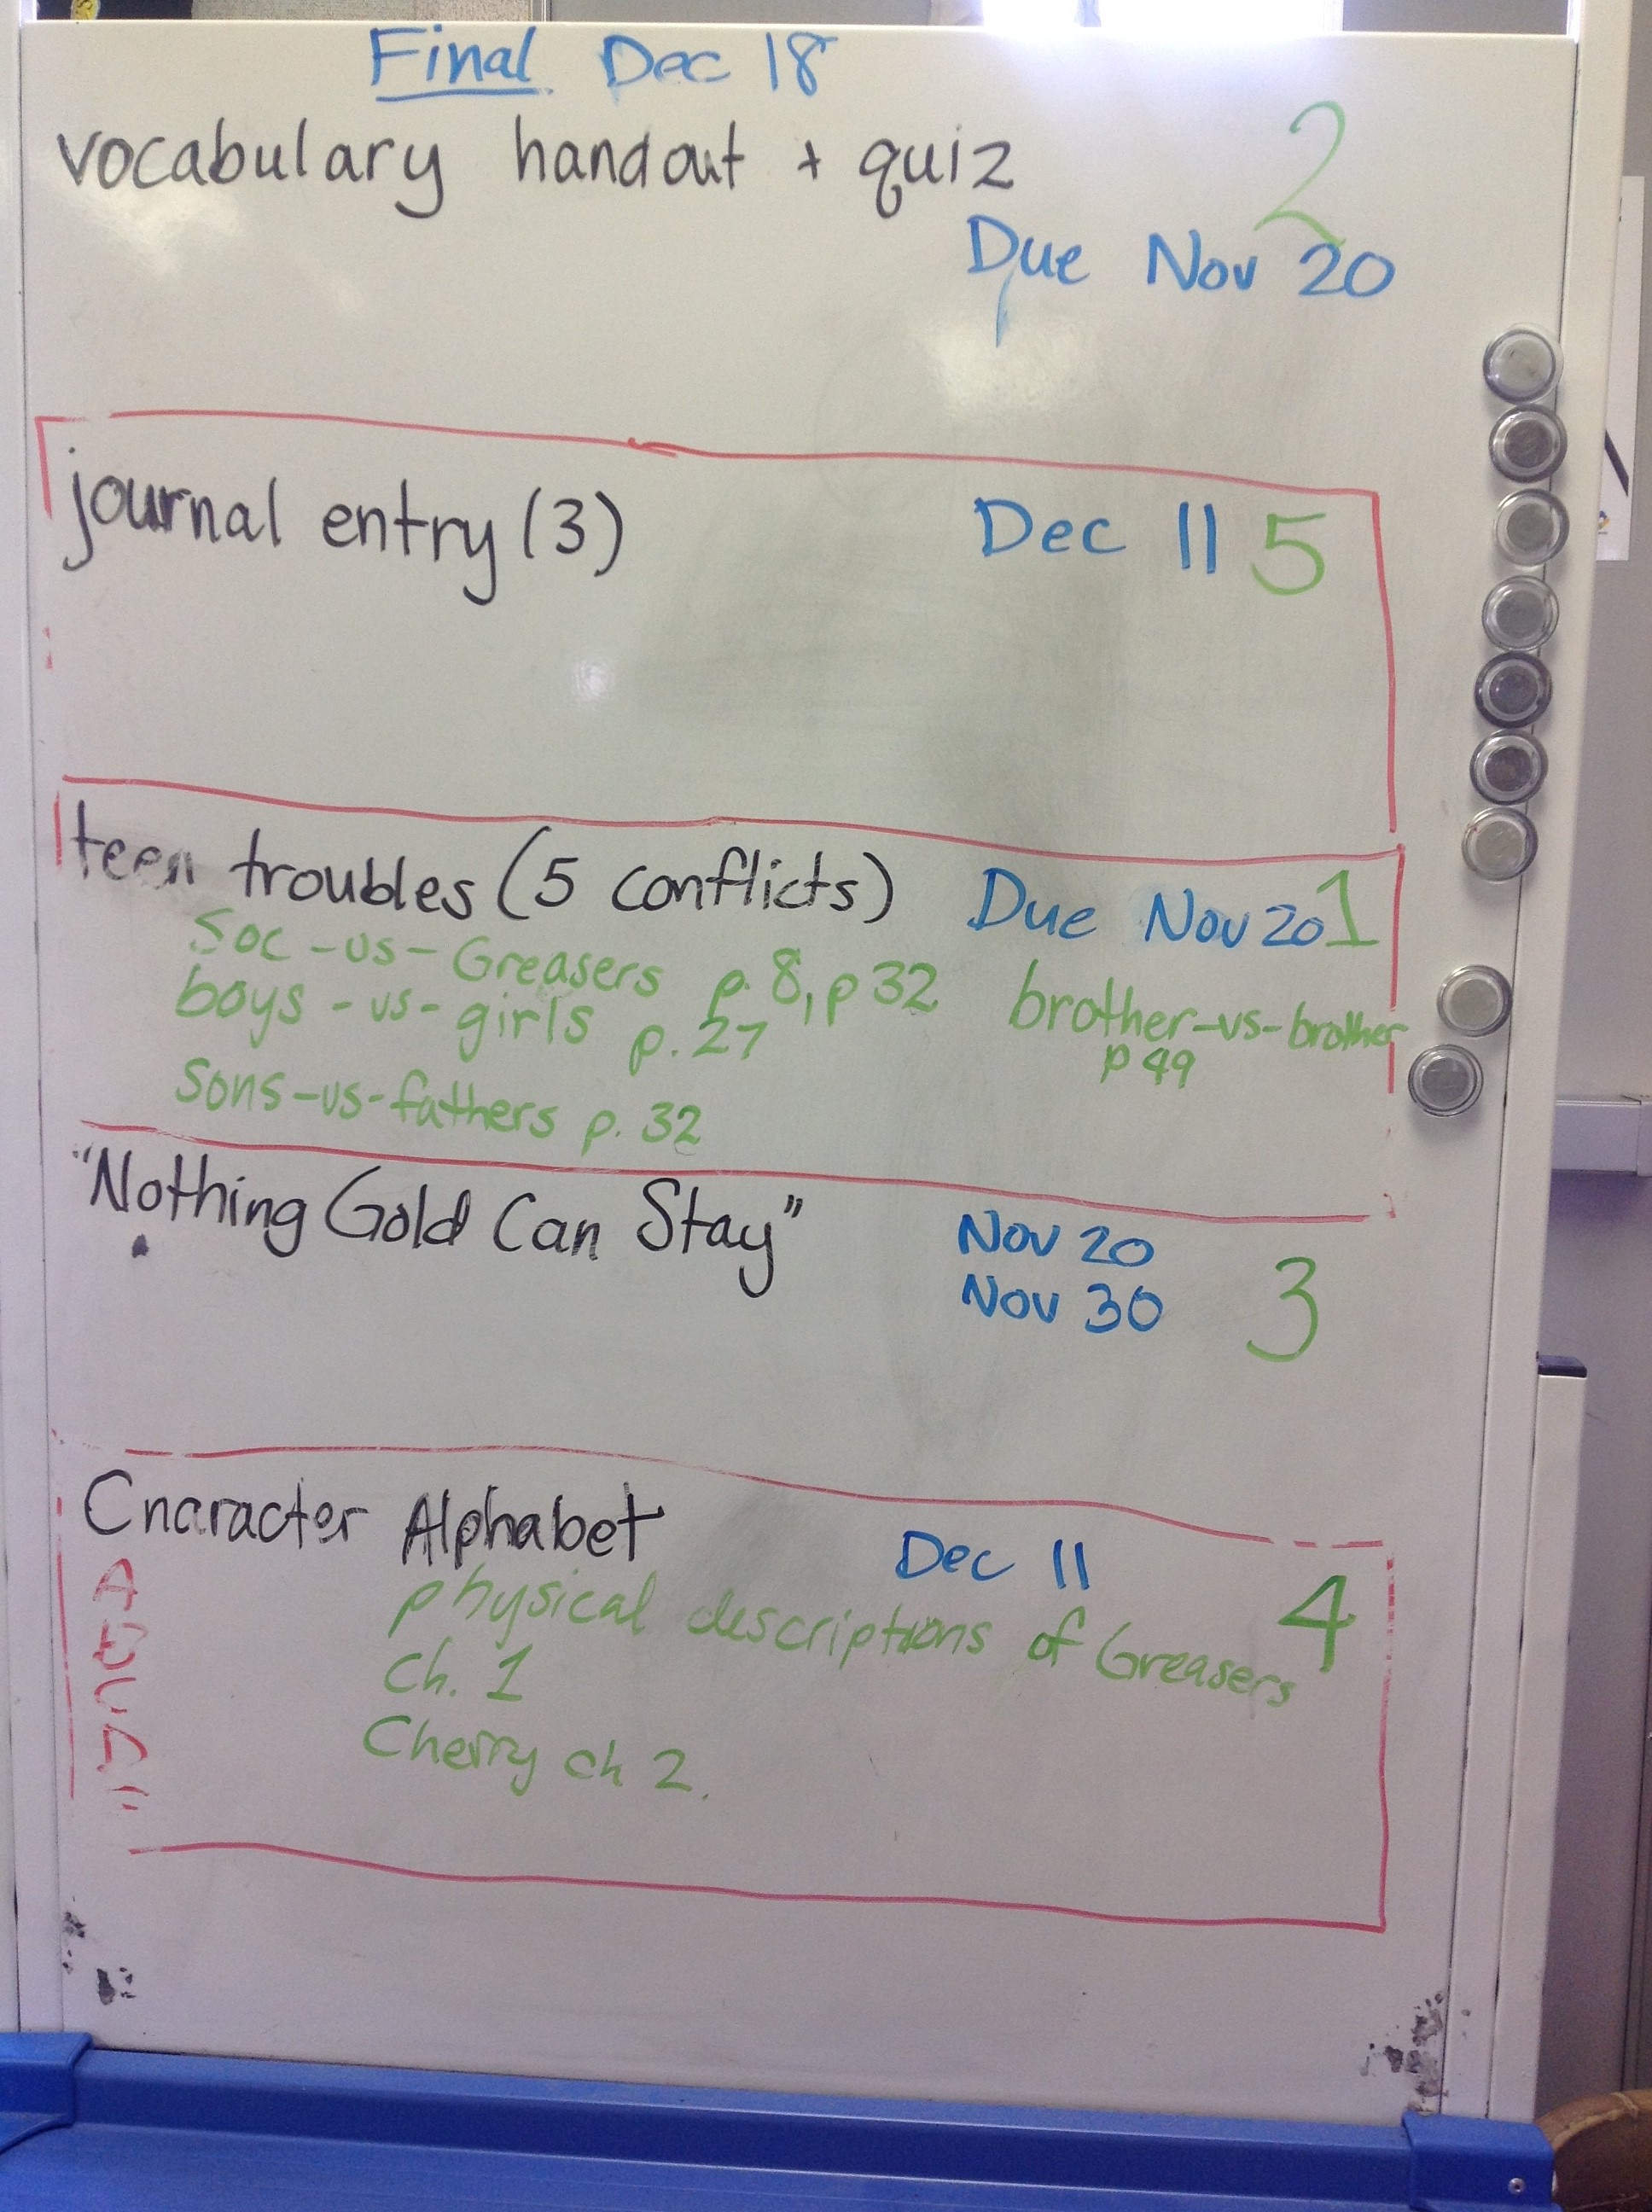 Final Dec 18
vocabulary handout + quiz 2
Due Nov 20
journal entry (3) Dec 11 5
teen troubles (5 conflicts) Due Nov 20 1
Soc -vs- Greasers p. 8, p 32
boys -vs- girls p. 27
brother-vs-brother
p 49
Sons-vs-fathers p. 32
"Nothing Gold Can Stay" Nov 20
Nov 30 3
Character Alphabet Dec 11
physical descriptions of Greasers 4
Ch. 1
Cherry ch 2.